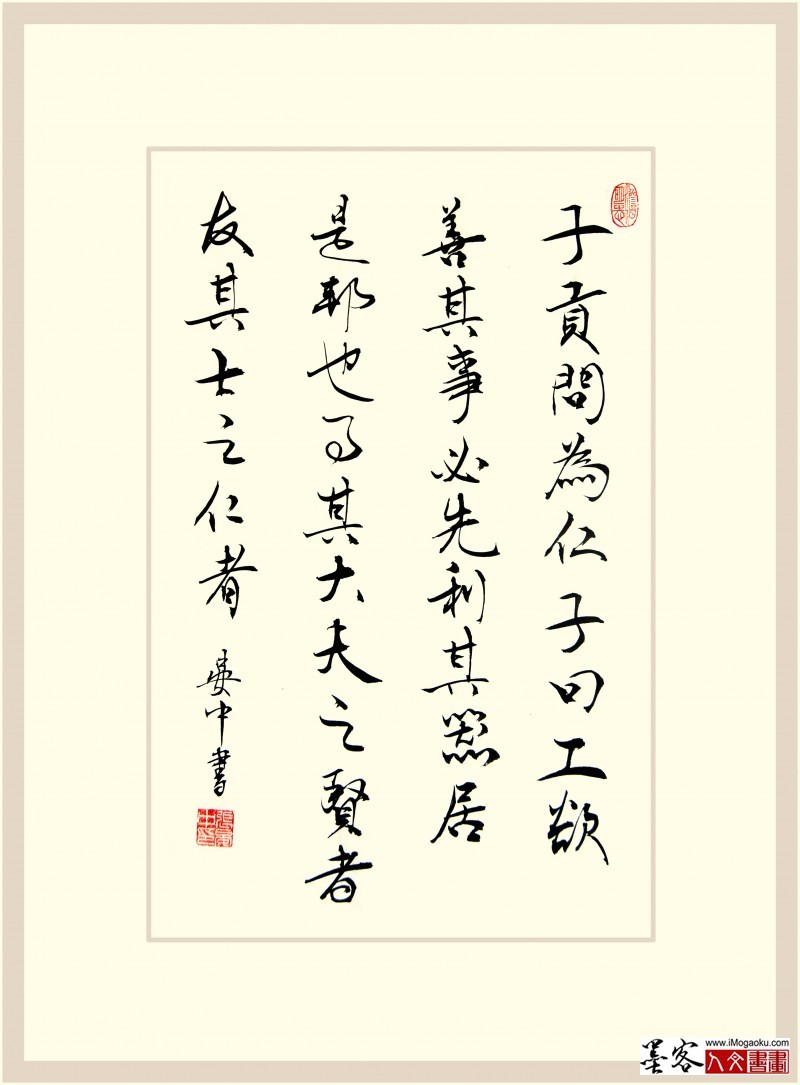 子貢問為仁子曰工欲
善其事必先利其器居
是邦也事其大夫之賢者
友其士之仁者
中書
墨客
www.iMogaoku.com
人文書畫